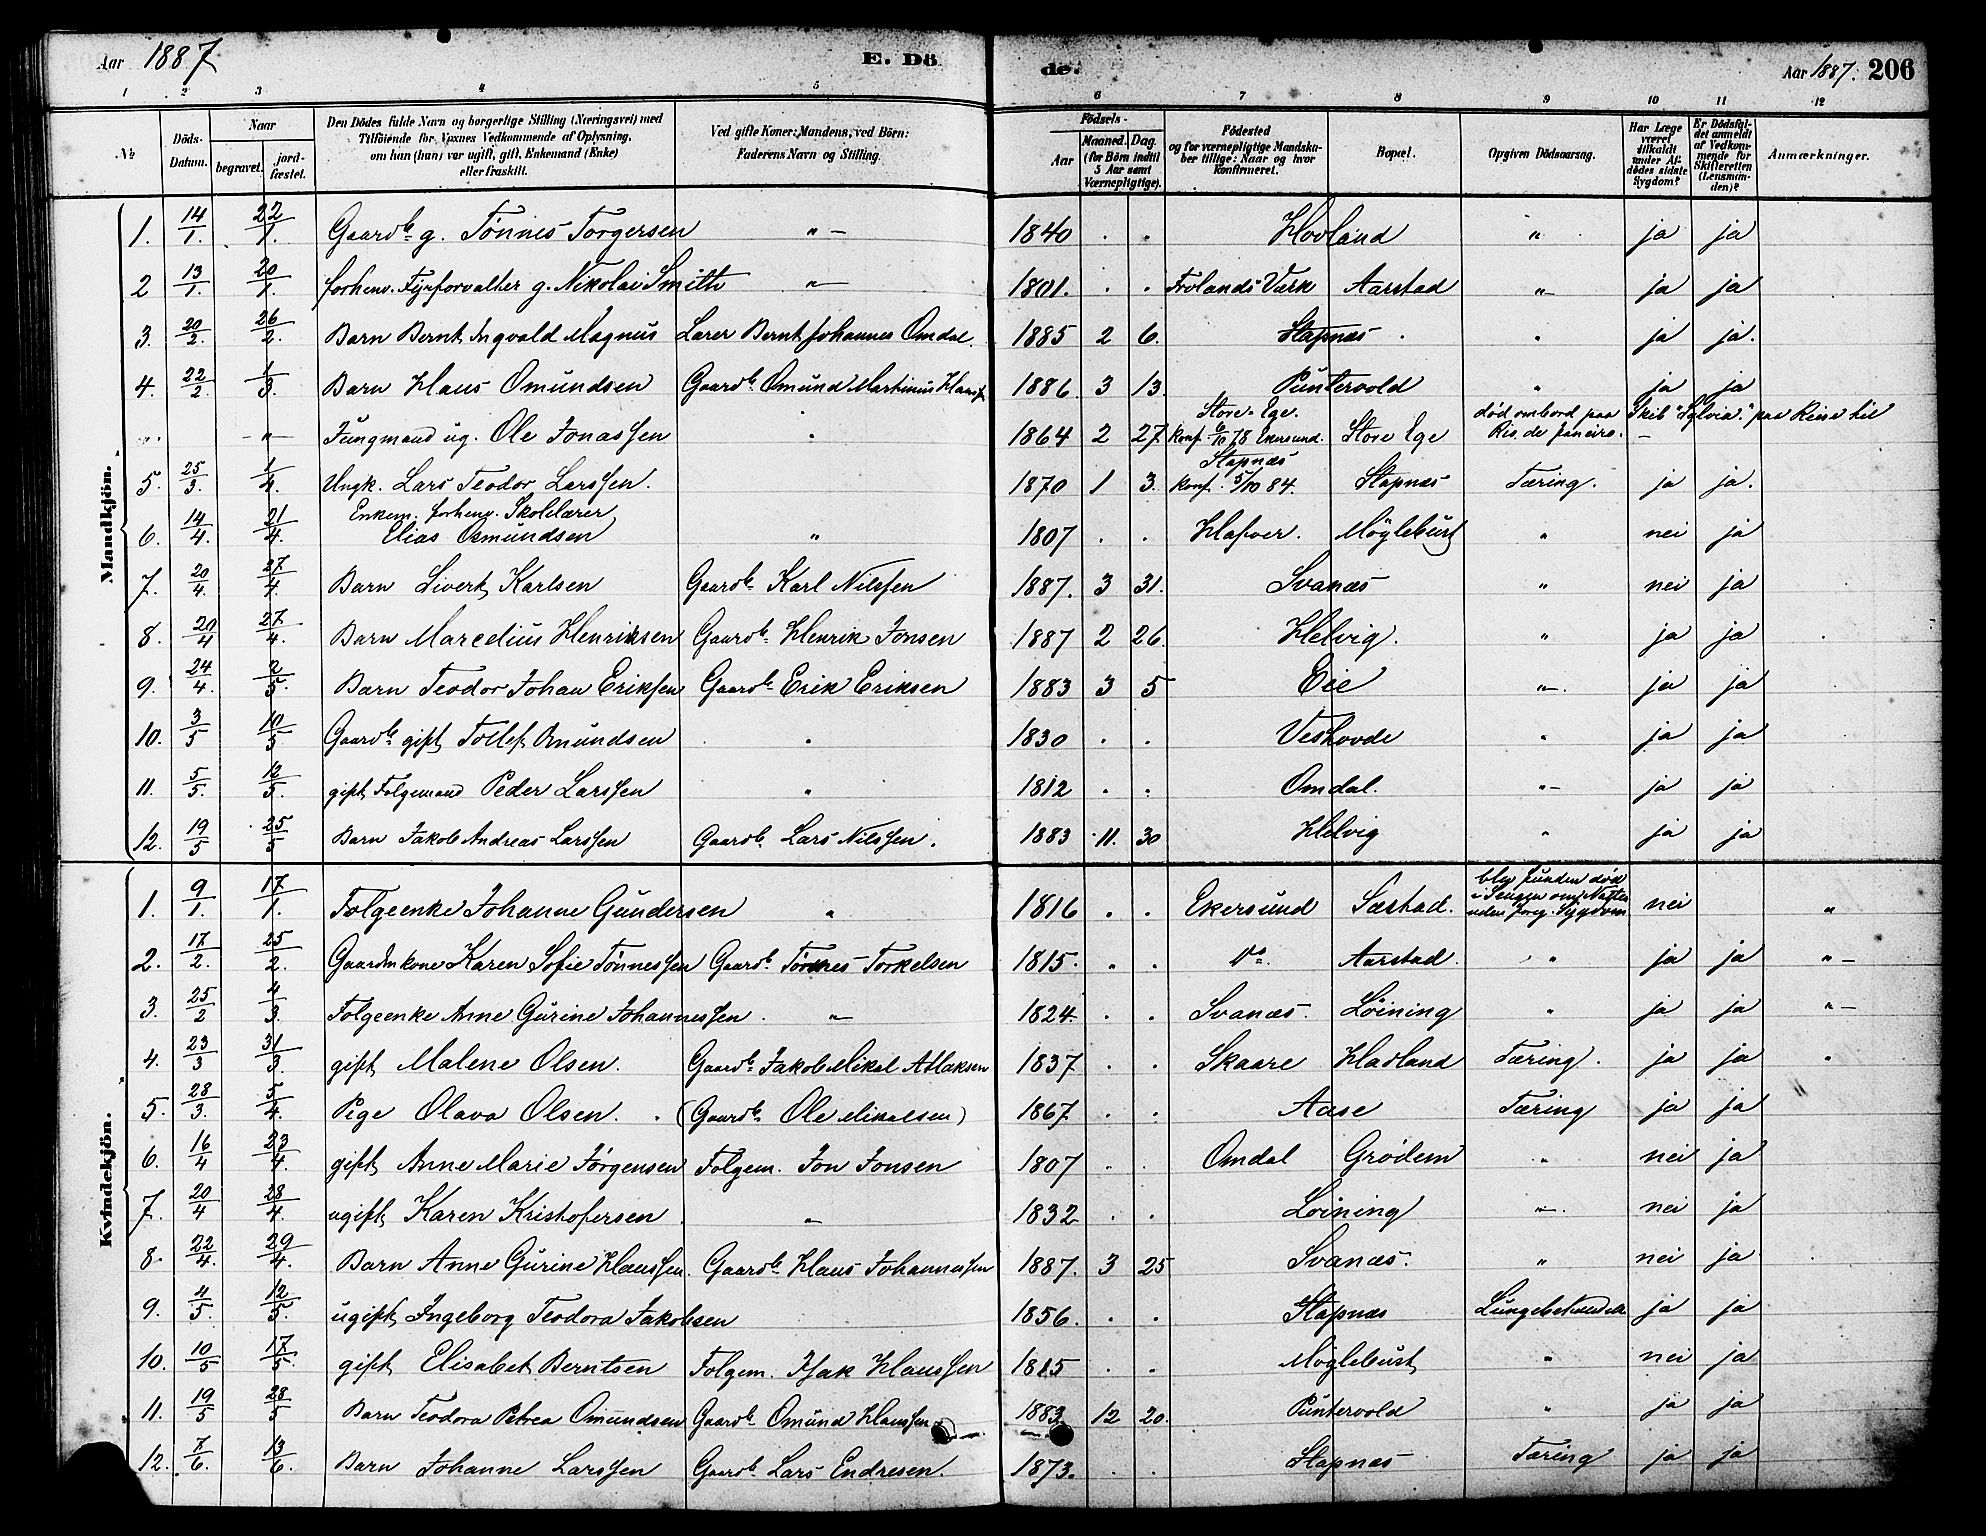 Aar 1887. E. Dö de. Aar 1887. 206
1 2 3 4 5 6 7 8 9 10 11 12
№ Döds-Datum. Naar begravet. jordfæstet. Den Dödes fulde Navn og borgerlige Stilling (Næringsvei) med Tilföiende for Voxnes Vedkommende af Oplysning, om han (hun) var ugift, gift, Enkemand (Enke) eller fraskilt. Ved gifte Koner: Mandens, ved Börn: Faderens Navn og Stilling. Födsels- Aar Maaned. Dag. (for Börn indtil 5 Aar samt Værnepligtige). Födested og for værnepligtige Mandskaber tillige: Naar og hvor konfirmeret. Bopæl. Opgiven Dödsaarsag. Har Læge været tilkaldt under Afdödes sidste Sygdom? Er Dödsfaldet anmeldt af Vedkommende for Skifteretten (Lensmanden)? Anmærkninger.
Mandkjön.
1. 14/1. 22/1. Gaardbr. g. Tönnes Torgersen " 1840 . . Hovland " ja ja
2 13/1. 20/1. forhenv. Fyrforvalter g. Nikolai Smith " 1801. . . Frolands Værk Aarstad " ja ja
3. 20/2. 26/2. Barn Bernt Ingvald Magnus Lærer Bernt Johannes Omdal. 1885 2 6. Stapnæs . " ja ja.
4. 22/2. 1/3. Barn Klaus Omundsen Gaardbr. Omund Martinius Klauss. 1886. 3 13. Puntervold " ja ja
" " Jungmand ug. Ole Jonassen " 1864 2 27. Store-Ege. Konf. 6/10 78 Ekersund. Store Ege död ombord paa Skib "Sylvia." paa Reise til Rio de Janeiro. –
5. 25/3. 1/4. Ungk. Lars Teodor Larssen. 1870 1 3. Stapnæs Konf. 5/10 84. Stapnæs Tæring. ja ja.
6. 14/4. 21/4. Enkem. forhenv. Skolelærer Elias Osmundsen " 1807 . . Klapver. Möglebust " nei ja
7. 20/4. 27/4. Barn Sivert Karlsen Gaardbr. Karl Nilssen 1887. 3 31. Svanæs " nei ja
8. 20/4 27/4. Barn Marcelius Henriksen Gaardbr. Henrik Jonsen 1887 2 26. Helvig. " ja ja
9. 24/4. 2/5. Barn Teodor Johan Eriksen Gaardbr. Erik Eriksen 1883 3 5 Eie " ja ja
10. 3/5 10/5 Gaardbr. gift Tollef Omundsen " 1830 . . Veshovde " ja ja
11. 5/5. 12/5. gift Folgemand Peder Larssen " 1812 . . Omdal. " ja ja
12. 19/5 25/5 Barn Jakob Andreas Larssen Gaardbr. Lars Nilssen. 1883 11. 30 Helvig " ja ja
Kvindekjön.
1. 9/1. 17/1. Folgeenke Johanne Gundersen " 1816 . . Ekersund Sæstad. blev funden död i Sengen om Natten uden foreg. Sygdom nei "
2. 17/2. 25/2. Gaardmkone Karen Sofie Tönnessen Gaardbr. Tönnes Torkelsen 1815. . . Do. Aarstad. " ja ja "
3. 25/2 4/3. Folgeenke Anne Gurine Johannessen. " 1824. . . Svanæs. Löining " ja ja "
4. 23/3 31/3. gift Malene Olsen. Gaardbr. Jakob Mikal Atlaksen 1837 . . Skaare Hadland Tæring. ja ja "
5. 28/3. 5/4. Pige Olava Olsen. (Gaardbr. Ole Mikalsen) 1867. . . Aase Tæring ja ja
6. 16/4 23/4. gift Anne Marie Jörgensen Folgem. Jon Jonsen 1807 . . Omdal Grödem " nei ja
7. 20/4 28/4. ugift Karen Kristofersen " 1832 . . Löining " nei ja
8. 22/4. 29/4. Barn Anne Gurine Klaussen. Gaardbr. Klaus Johannessen 1887. 3 25 Svanæs. " nei ja
9. 4/5. 12/5. ugift Ingeborg Teodora Jakobsen 1856. . . Stapnæs Lungebetændelse ja ja
10. 10/5 17/5. gift Elisabet Berntsen Folgem. Isak Klaussen 1815 . . Möglebust " nei ja
11. 19/5 28/5 Barn Teodora Petrea Omundsen Gaardbr. Omund Klaussen 1883 12 20. Puntervold " ja ja
12. 7/6. 13/6. Barn Johanne Larssen Gaardbr. Lars Endresen. 1873. . . Stapnæs Tæring ja ja